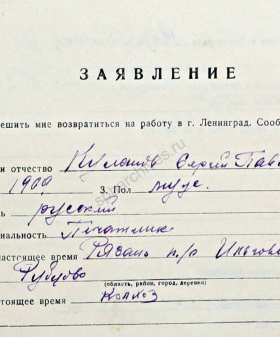 ЗАЯВЛЕНИЕ
ешить мне возвратиться на работу в г. Ленинград. Сооб
и отчество Сергей Пав
1909 3. Пол муж.
ь русский
иальность Печатник
астоящее время Рязань п/о
(область, район, город, деревня)
стоящее время колхоз